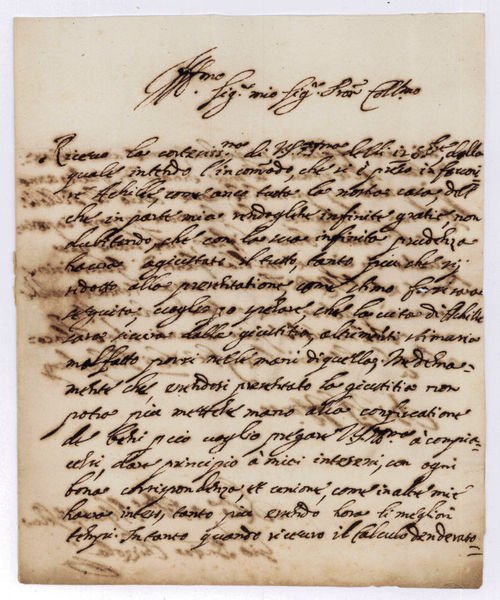 Ill.mo
Sig.r mio Sig.r Pron Coll.mo
Ricevo la cortesiss.ma di VS Ill.ma delli 12 8bre, dalla
quale intendo l'incomodo, che si è preso in favorir
Achille, come anco tutta la nostra casa, del
che in parte mia rendogliene infinite gratie, non
dubitando, che con la sua infinita prudenza
haverà agiustati il tutto, tanto più che si
ridotto alla presentatione come stimo
seguita, voglio sperare, che la vita di Achille
sarà sicura dalla giustitia, altrimenti stimaria
malfatto porsi nelle mani di quella; Medema-
mente che, essendosi presentato la giustitia non
potrà più mettere mano alla confiscatione
di beni, perciò voglio pregare VS Ill.ma à compia-
cersi, dare principio à miei interessi, con ogni
bona corrispondenza, et unione, come in altre mie
havrà inteso, tanto più essendo hora li megliori
tempi. In tanto quando ricevo il Calculo